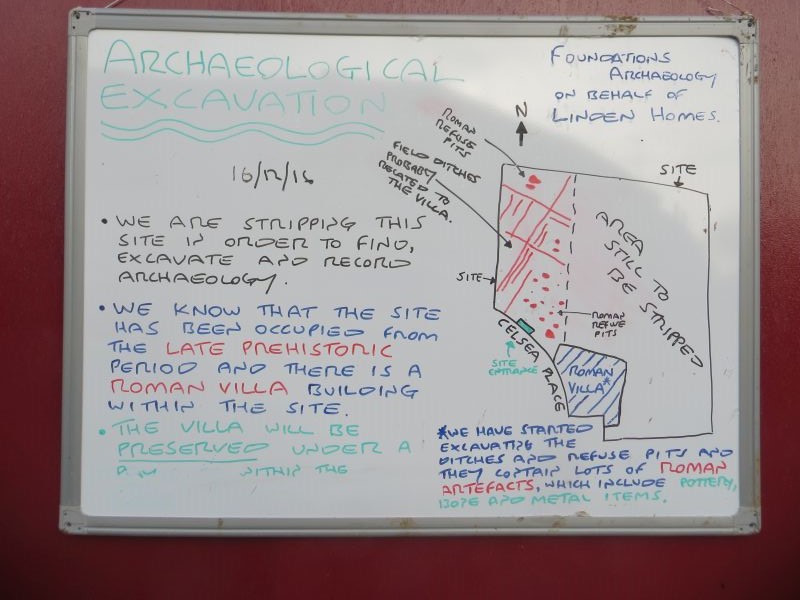 ARCHAEOLOGICAL
EXCAVATION
16/12/16
• WE ARE STRIPPING THIS
SITE IN ORDER TO FIND,
EXCAVATE AND RECORD
ARCHAEOLOGY.
• WE KNOW THAT THE SITE
HAS BEEN OCCUPIED FROM
THE LATE PREHISTORIC
PERIOD AND THERE IS A
ROMAN VILLA BUILDING
WITHIN THE SITE.
• THE VILLA WILL BE
PRESERVED UNDER A
WITHIN THE
FOUNDATIONS
ARCHAEOLOGY
ON BEHALF OF
LINDEN HOMES.
N
ROMAN
REFUSE
PITS
FIELD DITCHES
PROBABLY
RELATED TO
THE VILLA.
SITE
SITE
AREA
STILL TO
BE STRIPPED
ROMAN
REFUSE
PITS
CELSEA PLACE
SITE
ENTRANCE
ROMAN
VILLA*
*WE HAVE STARTED
EXCAVATING THE
DITCHES AND REFUSE PITS AND
THEY CONTAIN LOTS OF ROMAN
ARTEFACTS, WHICH INCLUDE POTTERY,
BONE AND METAL ITEMS.